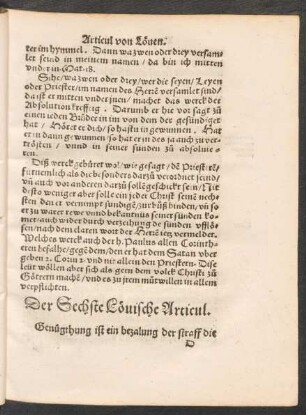 Articul von Löuen.
ter im hymmel. Dann wa zwen oder drey versam-
let seind in meinem namen / da bin ich mitten
vnder in Mat. 18.
Sihe / wa zwen oder drey / wer die seyen / Leyen
oder Priester / im namen des Herrē versamlet sind /
da ist er mitten vnder jnen / macht das werck der
Absolution krefftig. Darumb er hie vor sagt zů
einen jeden Brůder in im von dem der gesündiget
hat / Höret er dich / so hastu in gewunnen. Hat
er in dann gewunnen / so hat er in des ja auch zu ver-
trösten / vnnd in seiner sunden zů absoluie-
ren.
Diß werck gebüret wol / wie gesagt / dē Priestern /
fürnemlich als die besonders darzů verordnet seind /
vn̄ auch vor anderen darzů solle geschickt sein / Nit
disto weniger aber solle ein jeder Christ seinē nech-
sten den er vernimpt sündigē / zů bůß binden / vn̄ so
er zu warer rewe vund bekāntnus seiner sünden ko-
met / auch wider durch verzeihung de sünden vfflö-
sen / nach dem claren wort des Herrē jetz vermelder.
Welches werck auch der h. Paulus allen Corinthe-
ren befalhe / gegē dem / den er hat dem Satan vber
geben 2. Corin 2. vnd nit allein den Priestern. Dise
leüt wöllen aber sich als gern dem volck Christi zů
Göttern machē / vnd es zu jrem můtwillen in allem
verpflichten.
Der Sechste Löuische Articul.
Genůgthung ist ein bezalung der straff die
D